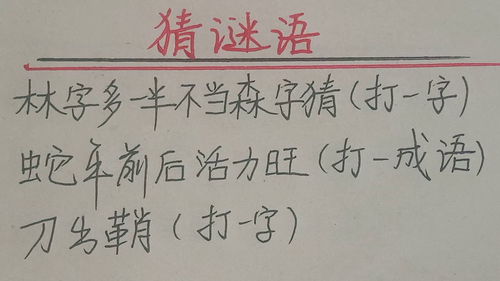 猜谜语
林字多一半不当森字猜(打一字)
蛇年前后活力旺(打一成语)
刀出鞘(打一字)